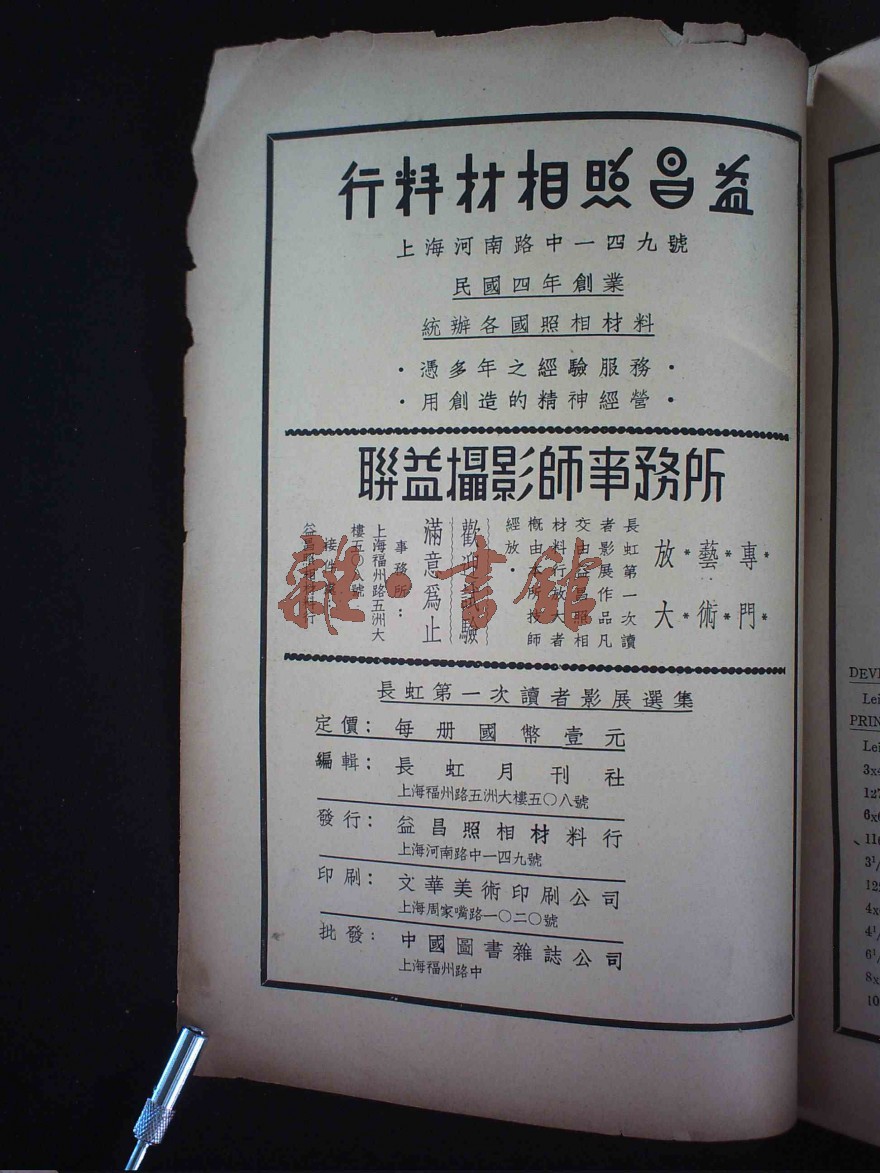 益昌照相材料行
上海河南路中一四九號
民國四年創業
統辦各國照相材料
·憑多年之經驗服務·
·用創造的精神經營·
聯益攝影師事務所
專門
藝術
放大
長虹第一次讀
者影展作品凡
交由益昌照相
材料行放大者
概由本所技師
經放·
歡迎試驗
滿意爲止
事務所：
上海福州路五洲大
樓五〇八號
接件處
益昌照相材料行
雜·書館
長虹第一次讀者影展選集
定價：每册國幣壹元
編輯：長虹月刊社
上海福州路五洲大樓五〇八號
發行：益昌照相材料行
上海河南路中一四九號
印刷：文華美術印刷公司
上海周家嘴路一〇二〇號
批發：中國圖書雜誌公司
上海福州路中